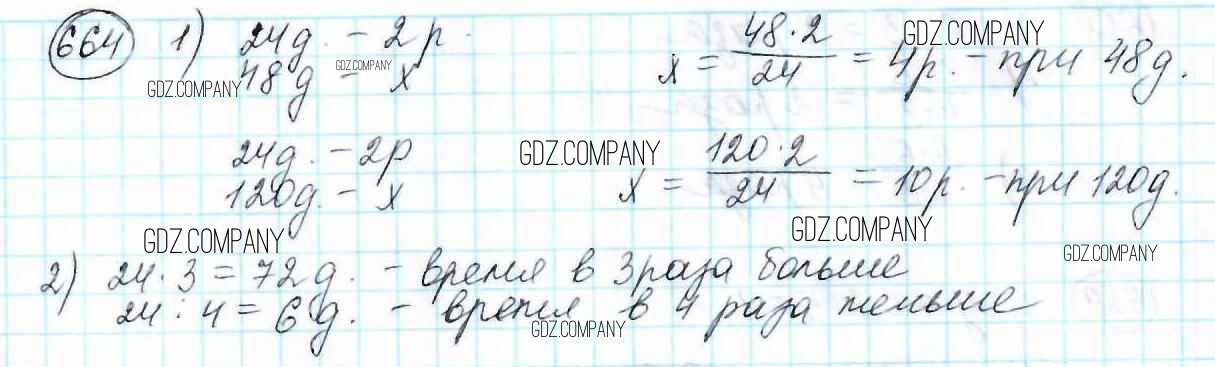 664 1) 24д. - 2р. x = 48·2/24 = 4р. - при 48д.
48д - x
24д. - 2р x = 120·2/24 = 10р. - при 120д.
120д. - x
2) 24·3 = 72д. - время в 3 раза больше
24:4 = 6д. - время в 4 раза меньше
GDZ.COMPANY
GDZ.COMPANY
GDZ.COMPANY
GDZ.COMPANY
GDZ.COMPANY
GDZ.COMPANY
GDZ.COMPANY
GDZ.COMPANY